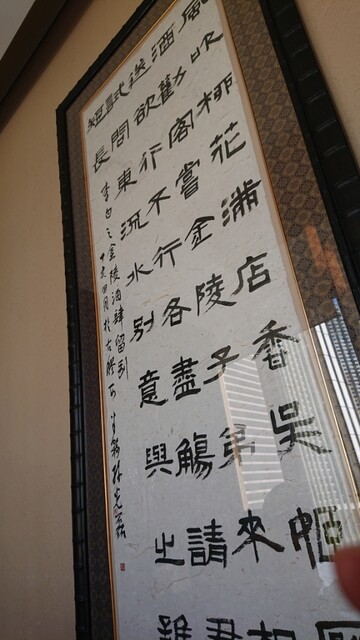 風吹柳花滿店香吳姬
酒勸閣嘗金陵子弟來相
送欲行不行各盡觴請君
試問東流水別意與之誰
短長
李白之金陵酒肆留別
丁亥四月於古滕